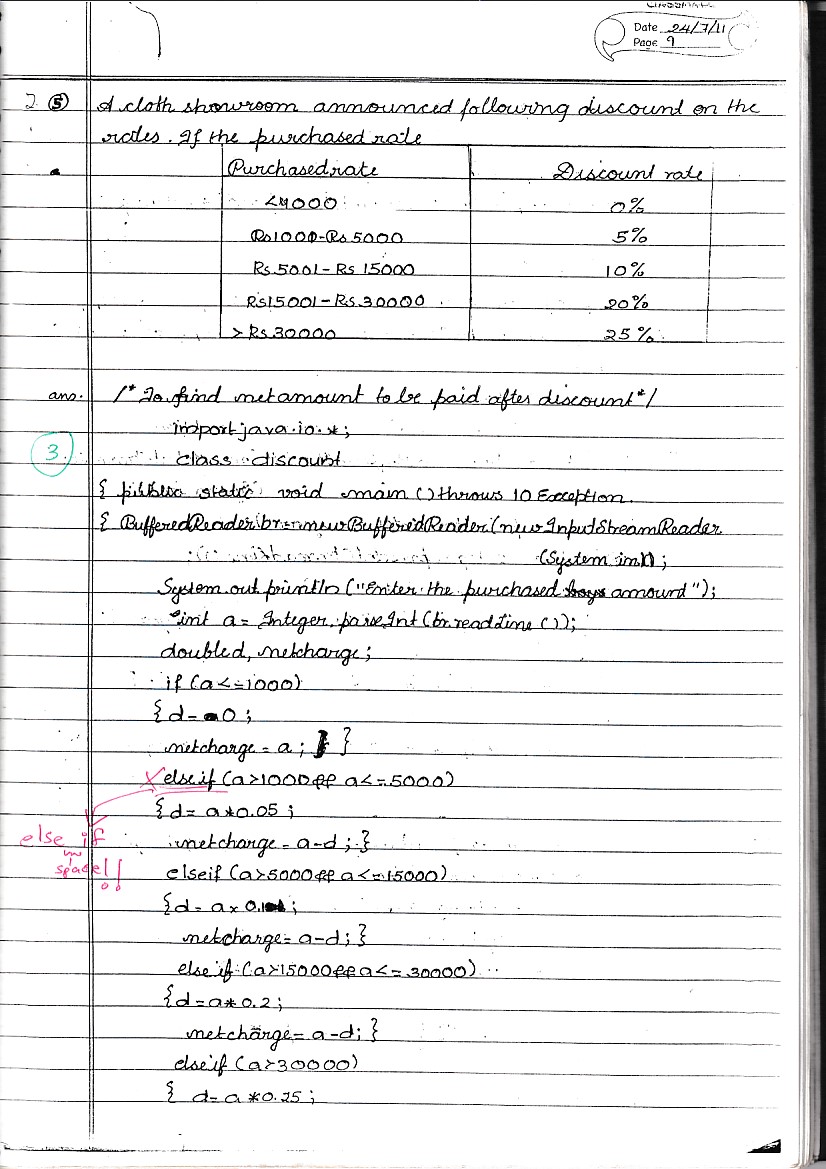 Date 24/7/11
Page 9
2 ⑤ A cloth showroom announced following discount on the
rates. If the purchased rate
Purchased rate Discount rate
0%
Rs 5000 5%
Rs.5001 - Rs 15000 10%
Rs15001 - Rs.30000 20%
> Rs.30000 25%
ans. /* To find net amount to be paid after discount */
3. import java.io.*;
class discount
{ public static void main () throws IO Exception.
{ BufferedReader br = new BufferedReader (new InputStreamReader
(System.in));
System.out.println ("Enter the purchased amount");
int a = Integer.parseInt (br.readLine ());
double d, netcharge;
if (a<=1000)
{d = 0;
netcharge = a; }
elseif (a>1000 && a<=5000)
{d= a*0.05;
else if
netcharge = a-d; }
space!!
elseif (a>5000 && a<=15000)
{d= a*
netcharge= a-d; }
elseif (a>15000 && a<= 30000)
{d=a*0.2;
netcharge= a-d; }
elseif (a>30000)
{ d= a *0.25;